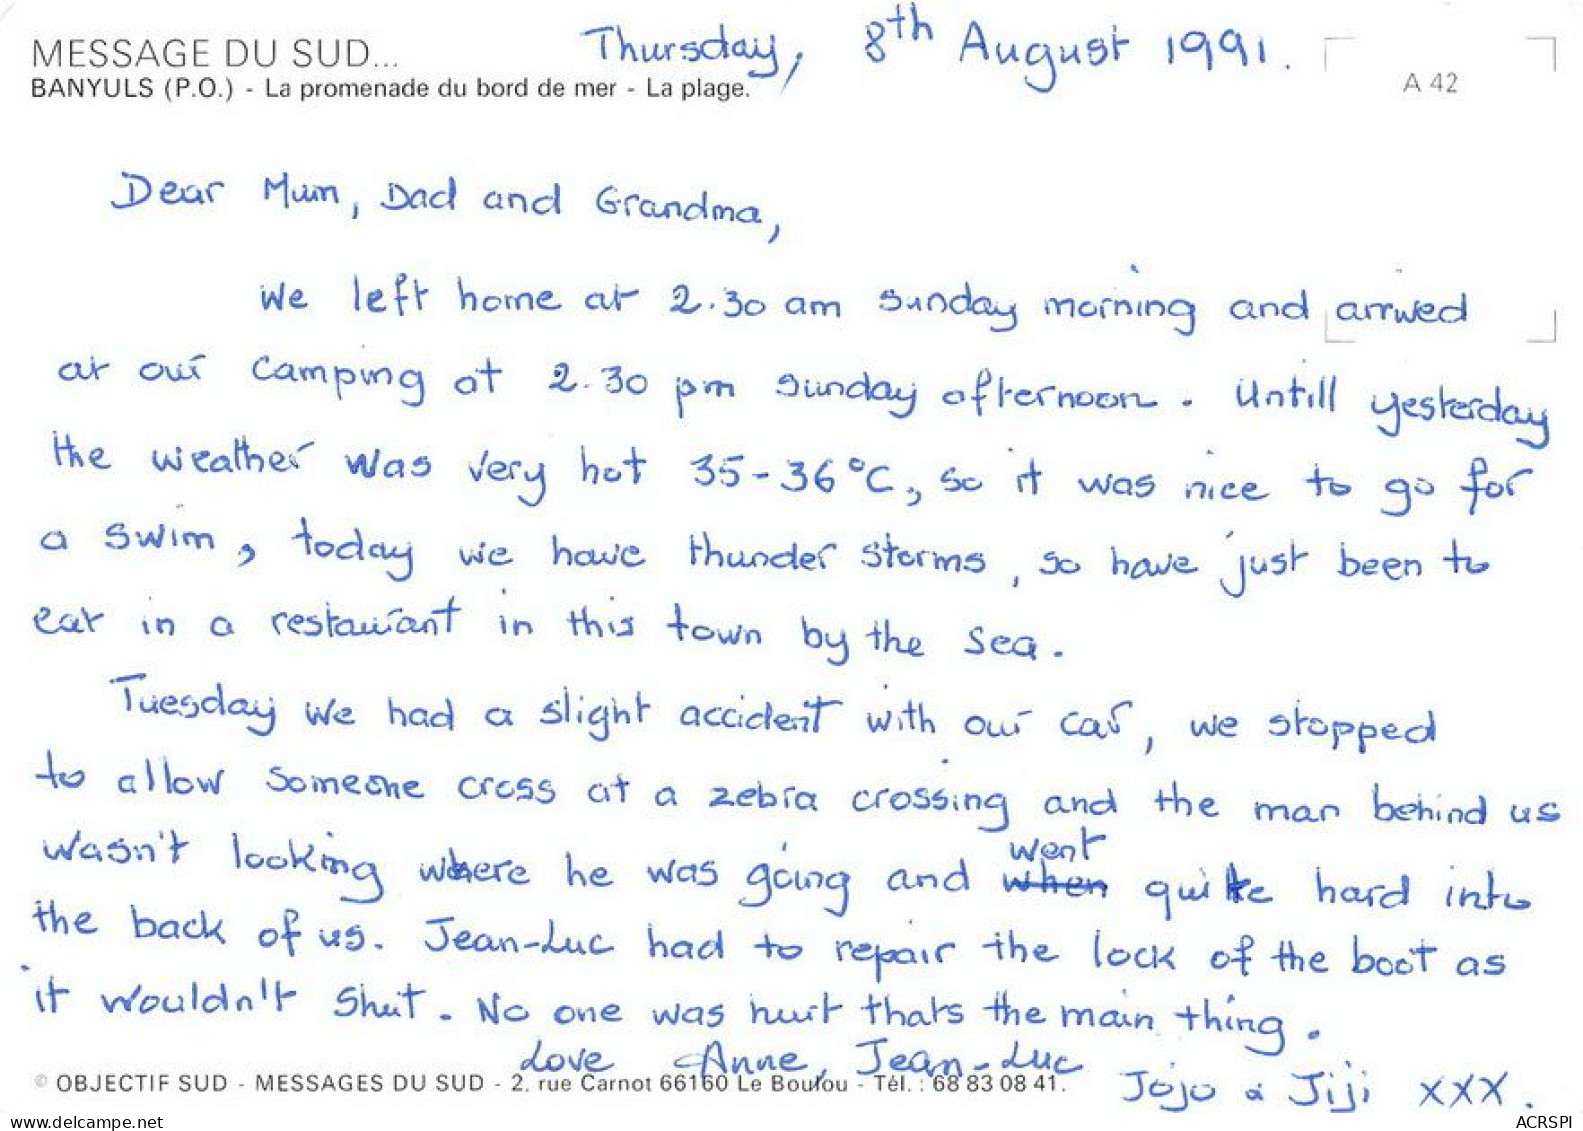 MESSAGE DU SUD...
Thursday, 8th August 1991.
BANYULS (P.O.) - La promenade du bord de mer - La plage.
A 42
Dear Mum, Dad and Grandma,
We left home at 2.30 am Sunday morning and arrived
at our camping at 2.30 pm Sunday afternoon. Untill yesterday
the weather was very hot 35-36°C, so it was nice to go for
a swim, today we have thunder storms, so have just been to
eat in a restaurant in this town by the sea.
Tuesday we had a slight accident with our car, we stopped
to allow someone cross at a zebra crossing and the man behind us
wasn't looking where he was going and when went quite hard into
the back of us. Jean-Luc had to repair the lock of the boot as
it wouldn't shut. No one was hurt thats the main thing.
Love Anne, Jean-Luc
Jojo & Jiji xxx.
© OBJECTIF SUD - MESSAGES DU SUD - 2, rue Carnot 66160 Le Boulou - Tél. : 68 83 08 41.
www.delcampe.net
ACRSPI